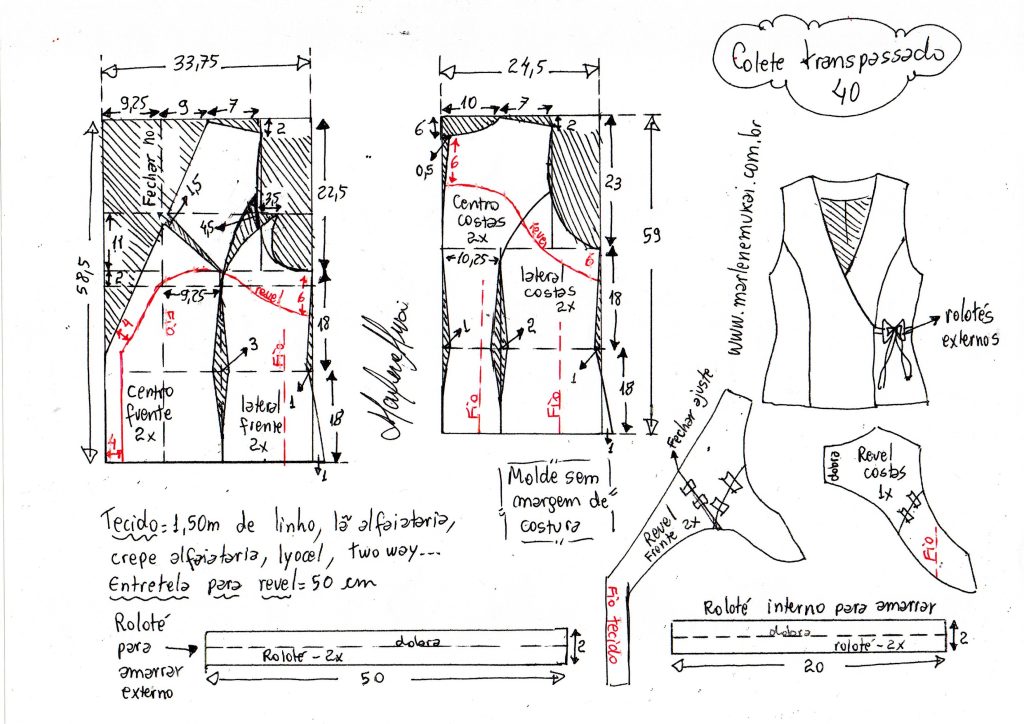 Colete transpassado
40
www.marlenemukai.com.br
33,75
9,25
9
7
2
Fechar no
1,5
3,5
4,5
22,5
11
2
58,5
9,25
revel
6
4
Fio
Fio
18
3
1
centro
frente
2x
lateral
frente
2x
18
4
1
Marlene Mukai
24,5
10
7
6
2
0,5
6
centro
costas
2x
revel
23
59
10,25
6
lateral
costas
2x
18
1
2
1
Fio
Fio
18
1
rolotês
externos
Molde sem
margem de
costura
Fechar ajuste
Revel
Frente 2x
Fio tecido
dobra
Revel
costas
1x
Fio
Tecido = 1,50m de linho, lã alfaiataria,
crepe alfaiataria, lyocel, two way...
Entretela para revel = 50 cm
Roloté
para
amarrar
externo
dobra
Roloté - 2x
2
50
Roloté interno para amarrar
dobra
roloté - 2x
2
20